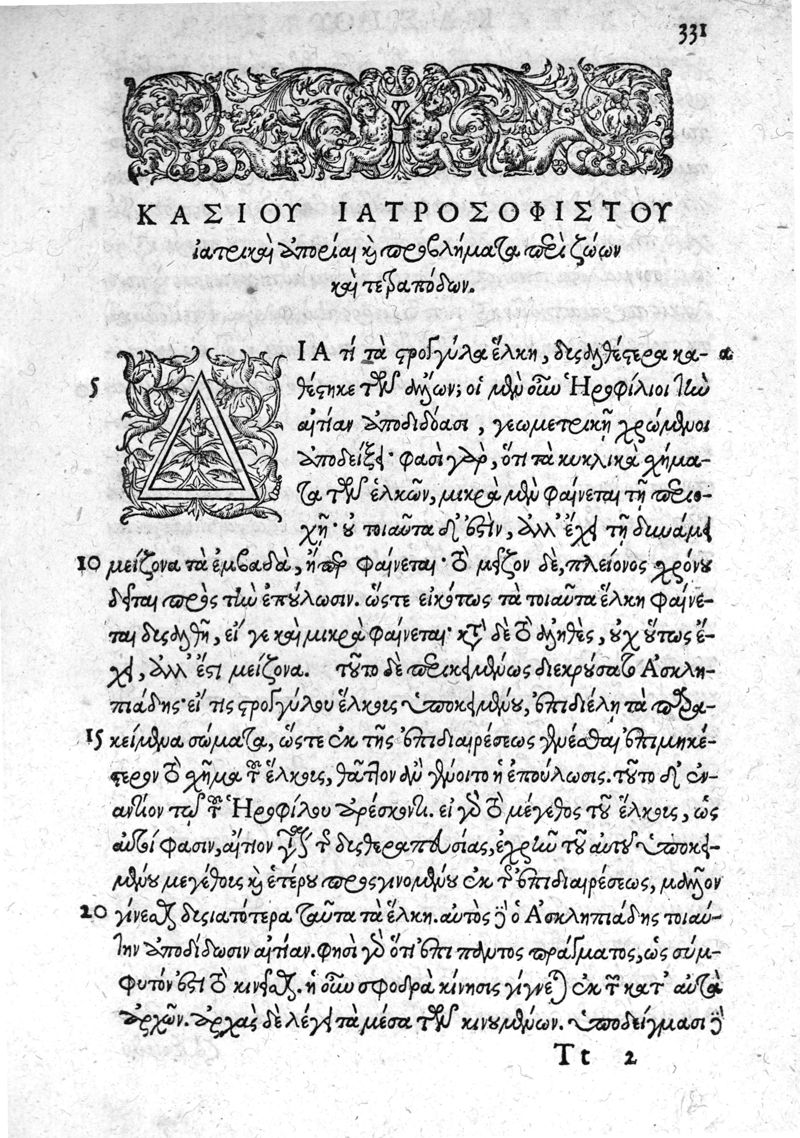 331
ΚΑΣΙΟΥ ΙΑΤΡΟΣΟΦΙΣΤΟΥ
ἰατρικαὶ ἀπορίαι καὶ προβλήματα περὶ ζώων
καὶ τετραπόδων.
ΔΙΑ τί τὰ στρογγύλα ἕλκη, δυσαλθέστερα κα- α
5 θέστηκε τῶν ἄλλων; οἱ μὲν οὖν Ἡροφίλιοι τὴν
αἰτίαν ἀποδιδόασι, γεωμετρικῇ χρώμενοι
ἀποδείξει· φασὶ γὰρ, ὅτι τὰ κυκλικὰ σχήμα-
τα τῶν ἑλκῶν, μικρὰ μὲν φαίνεται τῇ περιο-
χῇ· οὐ τοιαῦτα δ' ἐστὶν, ἀλλ' ἔχει τῇ δυνάμει
10 μείζονα τὰ ἐμβαδὰ, ἤπερ φαίνεται· τὸ μεῖζον δὲ, πλείονος χρόνου
δεῖται πρὸς τὴν ἐπούλωσιν. ὥστε εἰκότως τὰ τοιαῦτα ἕλκη φαίνε-
ται δυσαλθῆ, εἴ γε καὶ μικρὰ φαίνεται· κατὰ δὲ τὸ ἀληθὲς, οὐχ οὕτως ἔ-
χει, ἀλλ' ἔστι μείζονα. τοῦτο δὲ περικειμένως διεκρύσατο Ἀσκλη-
πιάδης· εἴ τις στρογγύλου ἕλκοις ὑποκειμένου, ἐπιδιέλῃ τὰ παρα-
15 κείμενα σώματα, ὥστε ἐκ τῆς ἐπιδιαιρέσεως γενέσθαι ἐπιμηκέ-
στερον τὸ σχῆμα τοῦ ἕλκοις, θᾶττον ἂν γένοιτο ἡ ἐπούλωσις. τοῦτο δ' ἐν-
αντίον τῷ τοῦ Ἡροφίλου ἀρέσκοντι. εἰ γὰρ τὸ μέγεθος τοῦ ἕλκοις, ὡς
αὐτοί φασιν, αἴτιον τῆς δυσθεραπευσίας, ἐχρῆν τοῦ αὐτοῦ ὑποκει-
μένου μεγέθοις καὶ ἑτέρου προσγινομένου ἐκ τῆς ἐπιδιαιρέσεως, μᾶλλον
20 γίνεσθαι δυσιατότερα ταῦτα τὰ ἕλκη. αὐτὸς δὲ ὁ Ἀσκληπιάδης τοιαύ-
την ἀποδίδωσιν αἰτίαν. φησὶ γὰρ ὅτι ἐπὶ παντὸς πράγματος, ὡς σύμ-
φυτόν ἐστι τὸ κινεῖσθαι. ἡ οὖν σφοδρὰ κίνησις γίγνεται ἐκ τῶν κατ' αὐτὰ
ἀρχῶν. ἀρχὰς δὲ λέγει τὰ μέσα τῶν κινουμένων. ὑποδείγμασι δὲ
Tt 2